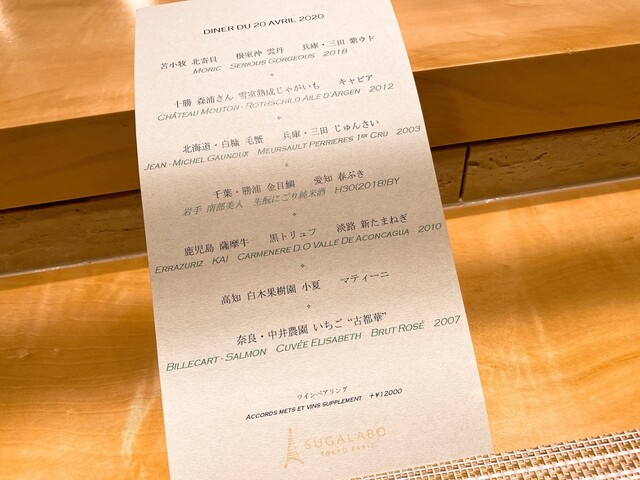 DINER DU 20 AVRIL 2020
苫小牧 北寄貝　根室沖 雲丹　兵庫・三田 紫ウド
MORIC SERIOUS GORGEOUS 2018
十勝 森浦さん 雪室熟成じゃがいも　キャビア
CHÂTEAU MOUTON-ROTHSCHILD AILE D'ARGEN 2012
北海道・白糠 毛蟹　兵庫・三田 じゅんさい
JEAN-MICHEL GAUNOUX MEURSAULT PERRIERES 1ER CRU 2003
千葉・勝浦 金目鯛　愛知 春ぶき
岩手 南部美人 生酛にごり純米酒 H30(2018)BY
鹿児島 薩摩牛　黒トリュフ　淡路 新たまねぎ
ERRAZURIZ KAI CARMENERE D.O VALLE DE ACONCAGUA 2010
高知 白木果樹園 小夏　マティーニ
奈良・中井農園 いちご "古都華"
BILLECART-SALMON CUVÉE ELISABETH BRUT ROSÉ 2007
ワインペアリング
ACCORDS METS ET VINS SUPPLEMENT +¥12000
SUGALABO
TOKYO PARIS